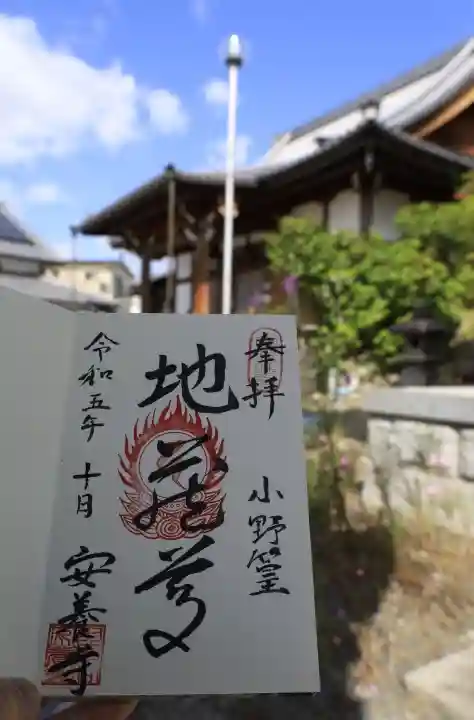 奉拝
小野篁
地蔵尊
令和五年 十月
安養寺